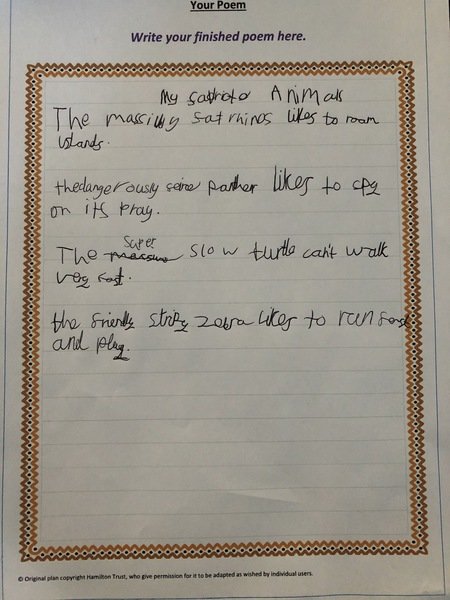 Your Poem
Write your finished poem here.
My Animals
The massivly fat rhinos likes to roam
islands.
thedangerously panther likes to spy
on its pray.
The super slow turtle can't walk
very fast.
the friendly stripy zebra likes to run
and play.
© Original plan copyright Hamilton Trust, who give permission for it to be adapted as wished by individual users.